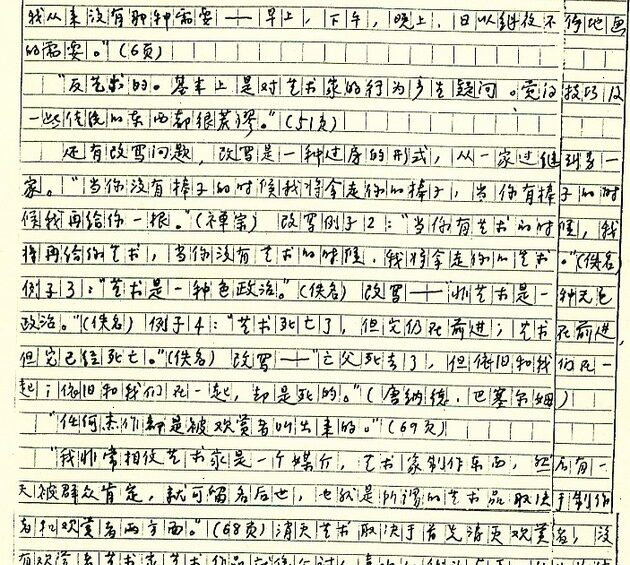 我从来没有那种需要——早上,下午,晚上,日以继夜不停地画
的需要。"(6页)
"反艺术的。基本上是对艺术家的行为产生疑问。觉得技巧及
一些传统的东西都很荒谬。"(51页)
还有改写问题,改写是一种过序的形式,从一家过继到另一
家。"当你没有棒子的时候我将拿走你的棒子,当你有棒子的时
候我再给你一根。"(禅宗) 改写例子2:"当你有艺术的时候,我
将再给你艺术,当你没有艺术的时候,我将拿走你的艺术。"(佚名)
例子3:"艺术是一种色政治。"(佚名) 改写——"非艺术是一种无色
政治。"(佚名) 例子4:"艺术死亡了,但它仍在前进;艺术在前进,
但它已经死亡。"(佚名) 改写——"亡父死去了,但依旧和我们在一
起;依旧和我们在一起,却是死的。"(唐纳德·巴塞尔姆)
"任何杰作都是被观赏者叫出来的。"(69页)
"我非常相信艺术家是一个媒介,艺术家制作东西,然后有一
天被群众肯定,就可留名后世,也就是所谓的艺术品取决于制作
者和观赏者两方面。"(68页) 消灭艺术取决于首先消灭观赏者,没
有观赏者艺术家艺术作品